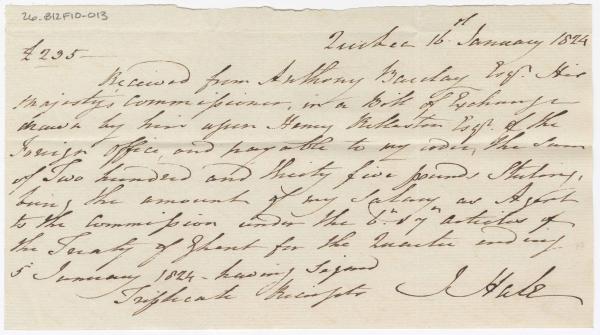 26-B12F10-013
Quebec 16th January 1824
£235—
Received from Anthony Barclay Esqr. His
Majesty's Commissioner, in a Bill of Exchange
drawn by him upon Henry Rollaston Esqr. of the
Foreign Office, and payable to my order, the Sum
of Two hundred and thirty five pounds Sterling,
being the amount of my Salary as Agent
to the Commission under the 6th & 7th articles of
the Treaty of Ghent for the Quarter ending
5 January 1824 - having Signed
Triplicate Receipts J Hale